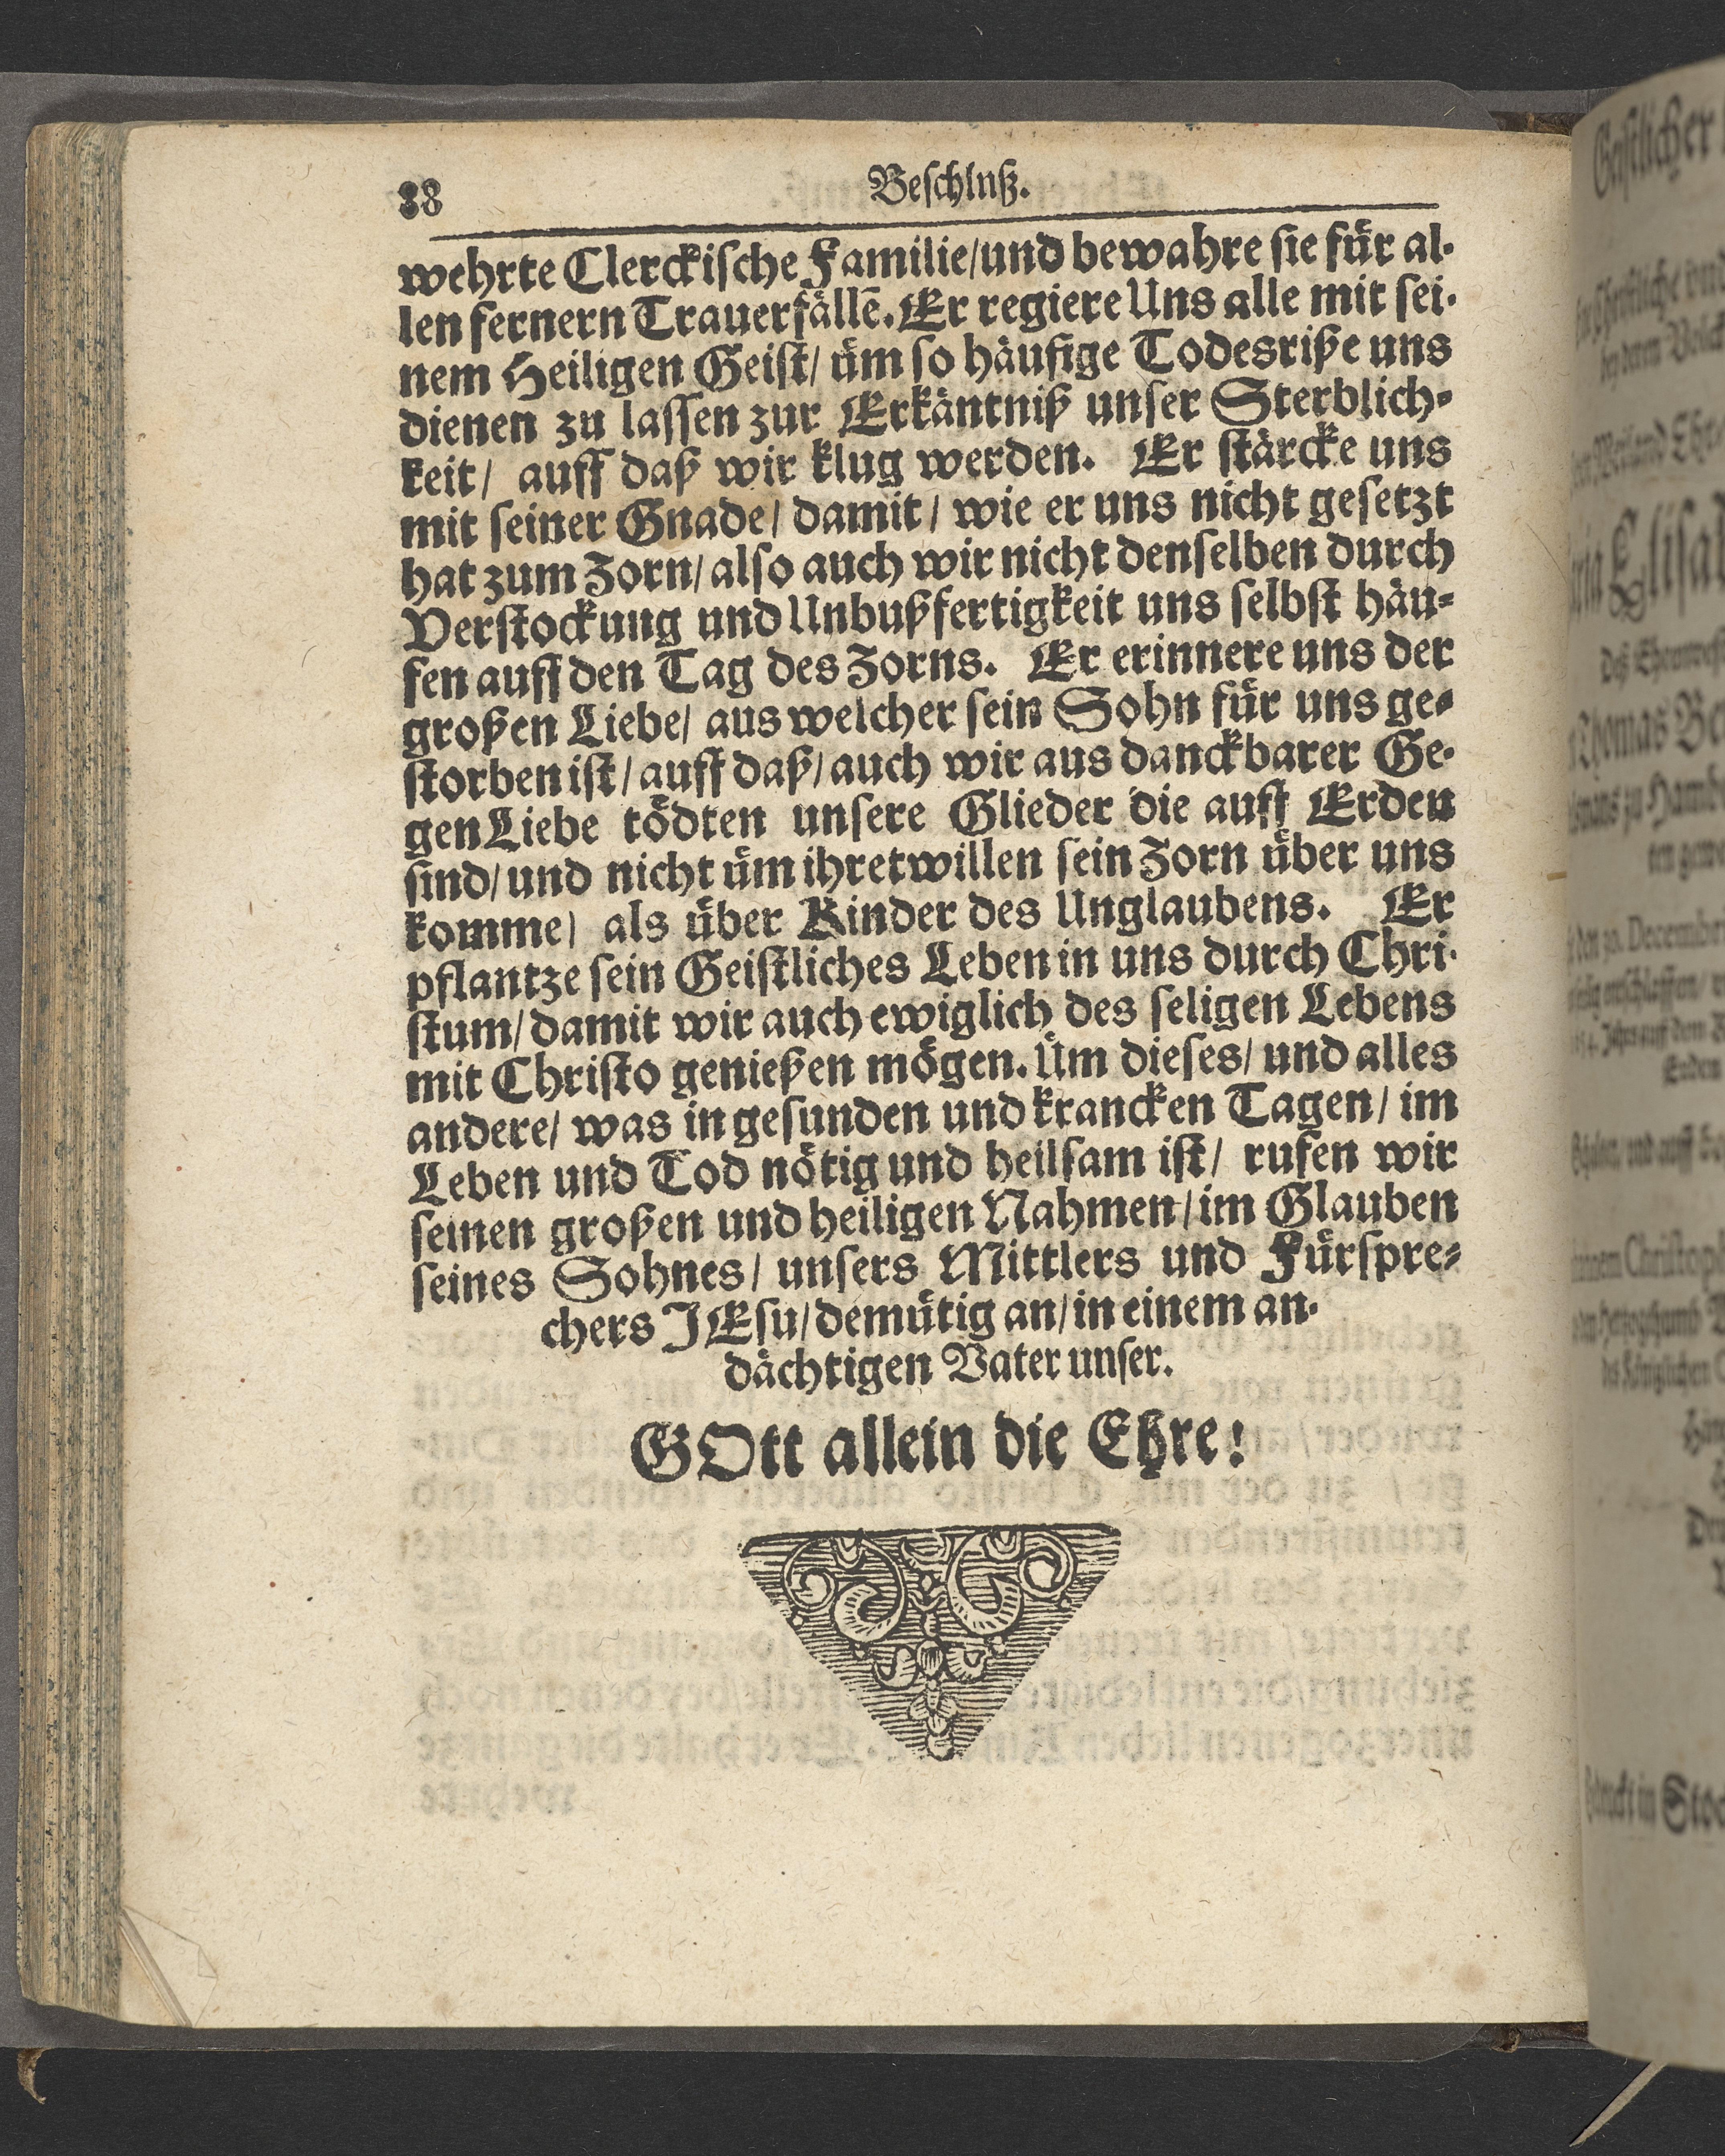 38
Beschluß.
wehrte Clerckische Familie/und bewahre sie für al-
len fernern Trauerfällē. Er regiere Uns alle mit sei-
nem Heiligen Geist/ üm so häufige Todesriße uns
dienen zu lassen zur Erkäntniß unser Sterblich-
keit/ auff daß wir klug werden. Er stärcke uns
mit seiner Gnade/ damit/ wie er uns nicht gesetzt
hat zum Zorn/also auch wir nicht denselben durch
Verstockung und Unbußfertigkeit uns selbst häu-
fen auff den Tag des Zorns. Er erinnere uns der
großen Liebe/ aus welcher sein Sohn für uns ge-
storben ist/auff daß/auch wir aus danckbarer Ge-
gen Liebe tödten unsere Glieder die auff Erden
sind/und nicht üm ihretwillen sein Zorn über uns
komme/ als über Kinder des Unglaubens. Er
pflantze sein Geistliches Leben in uns durch Chri-
stum/damit wir auch ewiglich des seligen Lebens
mit Christo genießen mögen. Üm dieses/und alles
andere/ was in gesunden und krancken Tagen/ im
Leben und Tod nötig und heilsam ist/ rufen wir
seinen großen und heiligen Nahmen/im Glauben
seines Sohnes/ unsers Mittlers und Fürspre-
chers JEsu/demütig an/in einem an-
dächtigen Vater unser.
GOtt allein die Ehre!